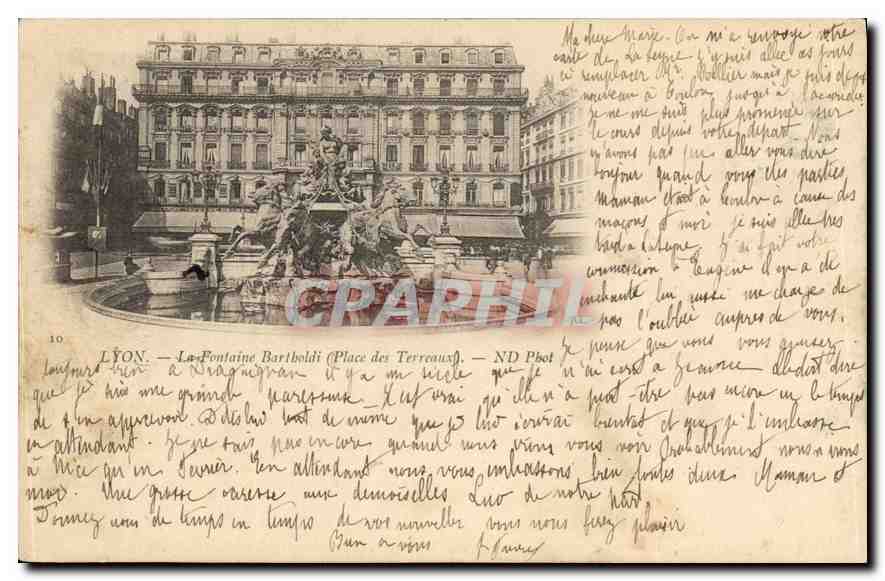 Ma chere Marie. On m'a renvoyé votre
carte de La Seyne j'y suis allée as jours
ci remplacer Mr. mais je suis de
nouveau à Toulon jusqu'à
je ne me suis plus promenée sur
le cours depuis votre départ. Nous
n'avons pas pu aller vous dire
bonjour quand vous êtes parties
maman était à Toulon à cause des
maçons et moi je suis allée très
tard à Laseyne. J'ai fait votre
commission à Eugène il en a été
enchanté lui aussi me charge de
pas l'oublier auprès de vous.
CAPHIL
10
LYON. — La Fontaine Bartholdi (Place des Terreaux). — ND Phot
Je pense que vous vous amusez
toujours bien à Draguignan il y a un siècle que je n'ai écrit à Jeanne elle doit dire
que je suis une grande paresseuse. C'est vrai qu'elle n'a peut-être pas encore eu le temps
de s'en apercevoir. Dites lui tout de même que je lui écrirai bientôt et que je l'embrasse
en attendant. Je ne sais pas encore quand nous irons vous voir Probablement nous n'irons
à Nice qu'en Février. En attendant nous vous embrassons bien toutes deux Maman et
moi. Une grosse caresse aux demoiselles Luo de notre part
Donnez nous de temps en temps de vos nouvelles vous nous ferez plaisir
Bien à vous